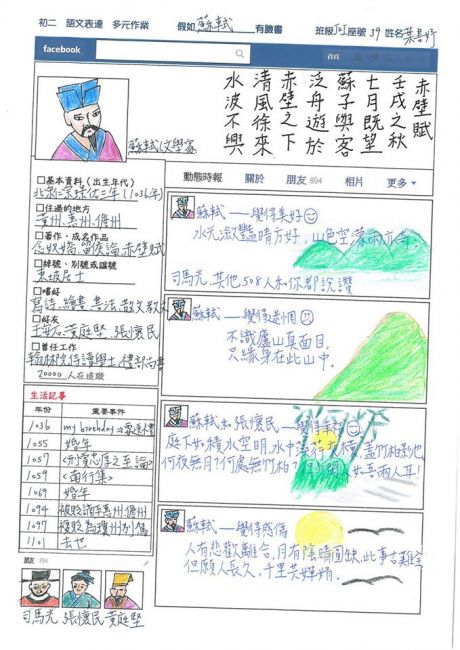 初二 語文表達 多元作業 假如蘇軾有臉書 班級 座號39 姓名
facebook
首頁
赤壁賦
壬戌之秋
七月既望
蘇子與客
泛舟遊於
赤壁之下
清風徐來
水波不興
蘇軾(文學家)
動態時報 關於 朋友 894 相片 更多
□基本資料(出生年代)
□住過的地方
黃州、惠州、儋州
□著作、成名作品
念奴嬌、留侯論、赤壁賦
□綽號、別號或諡號
東坡居士
□嗜好
□好友
黃庭堅、張懷民
□曾任工作
20000 人在追蹤
蘇軾——覺得美好
水光瀲灩晴方好,山色空濛雨亦奇
司馬光、其他508人和你都說讚
蘇軾——覺得迷惘
不識廬山真面目,
只緣身在此山中.
蘇軾和張懷民——覺得幸福
庭下如積水空明,水中藻荇交橫,蓋竹柏影也
何夜無月?何處無竹柏?
蘇軾——覺得感傷
人有悲歡離合,月有陰晴圓缺,此事古難全
但願人長久,千里共嬋娟.
生活記事
年份 重要事件
1036 my birthday
1055 婚年
1057 <刑賞忠厚之至論>
1059 <南行集>
1069 婚年
1094 被貶謫于惠州、儋州
1097
1101 去世
朋友 894
司馬光 張懷民 黃庭堅